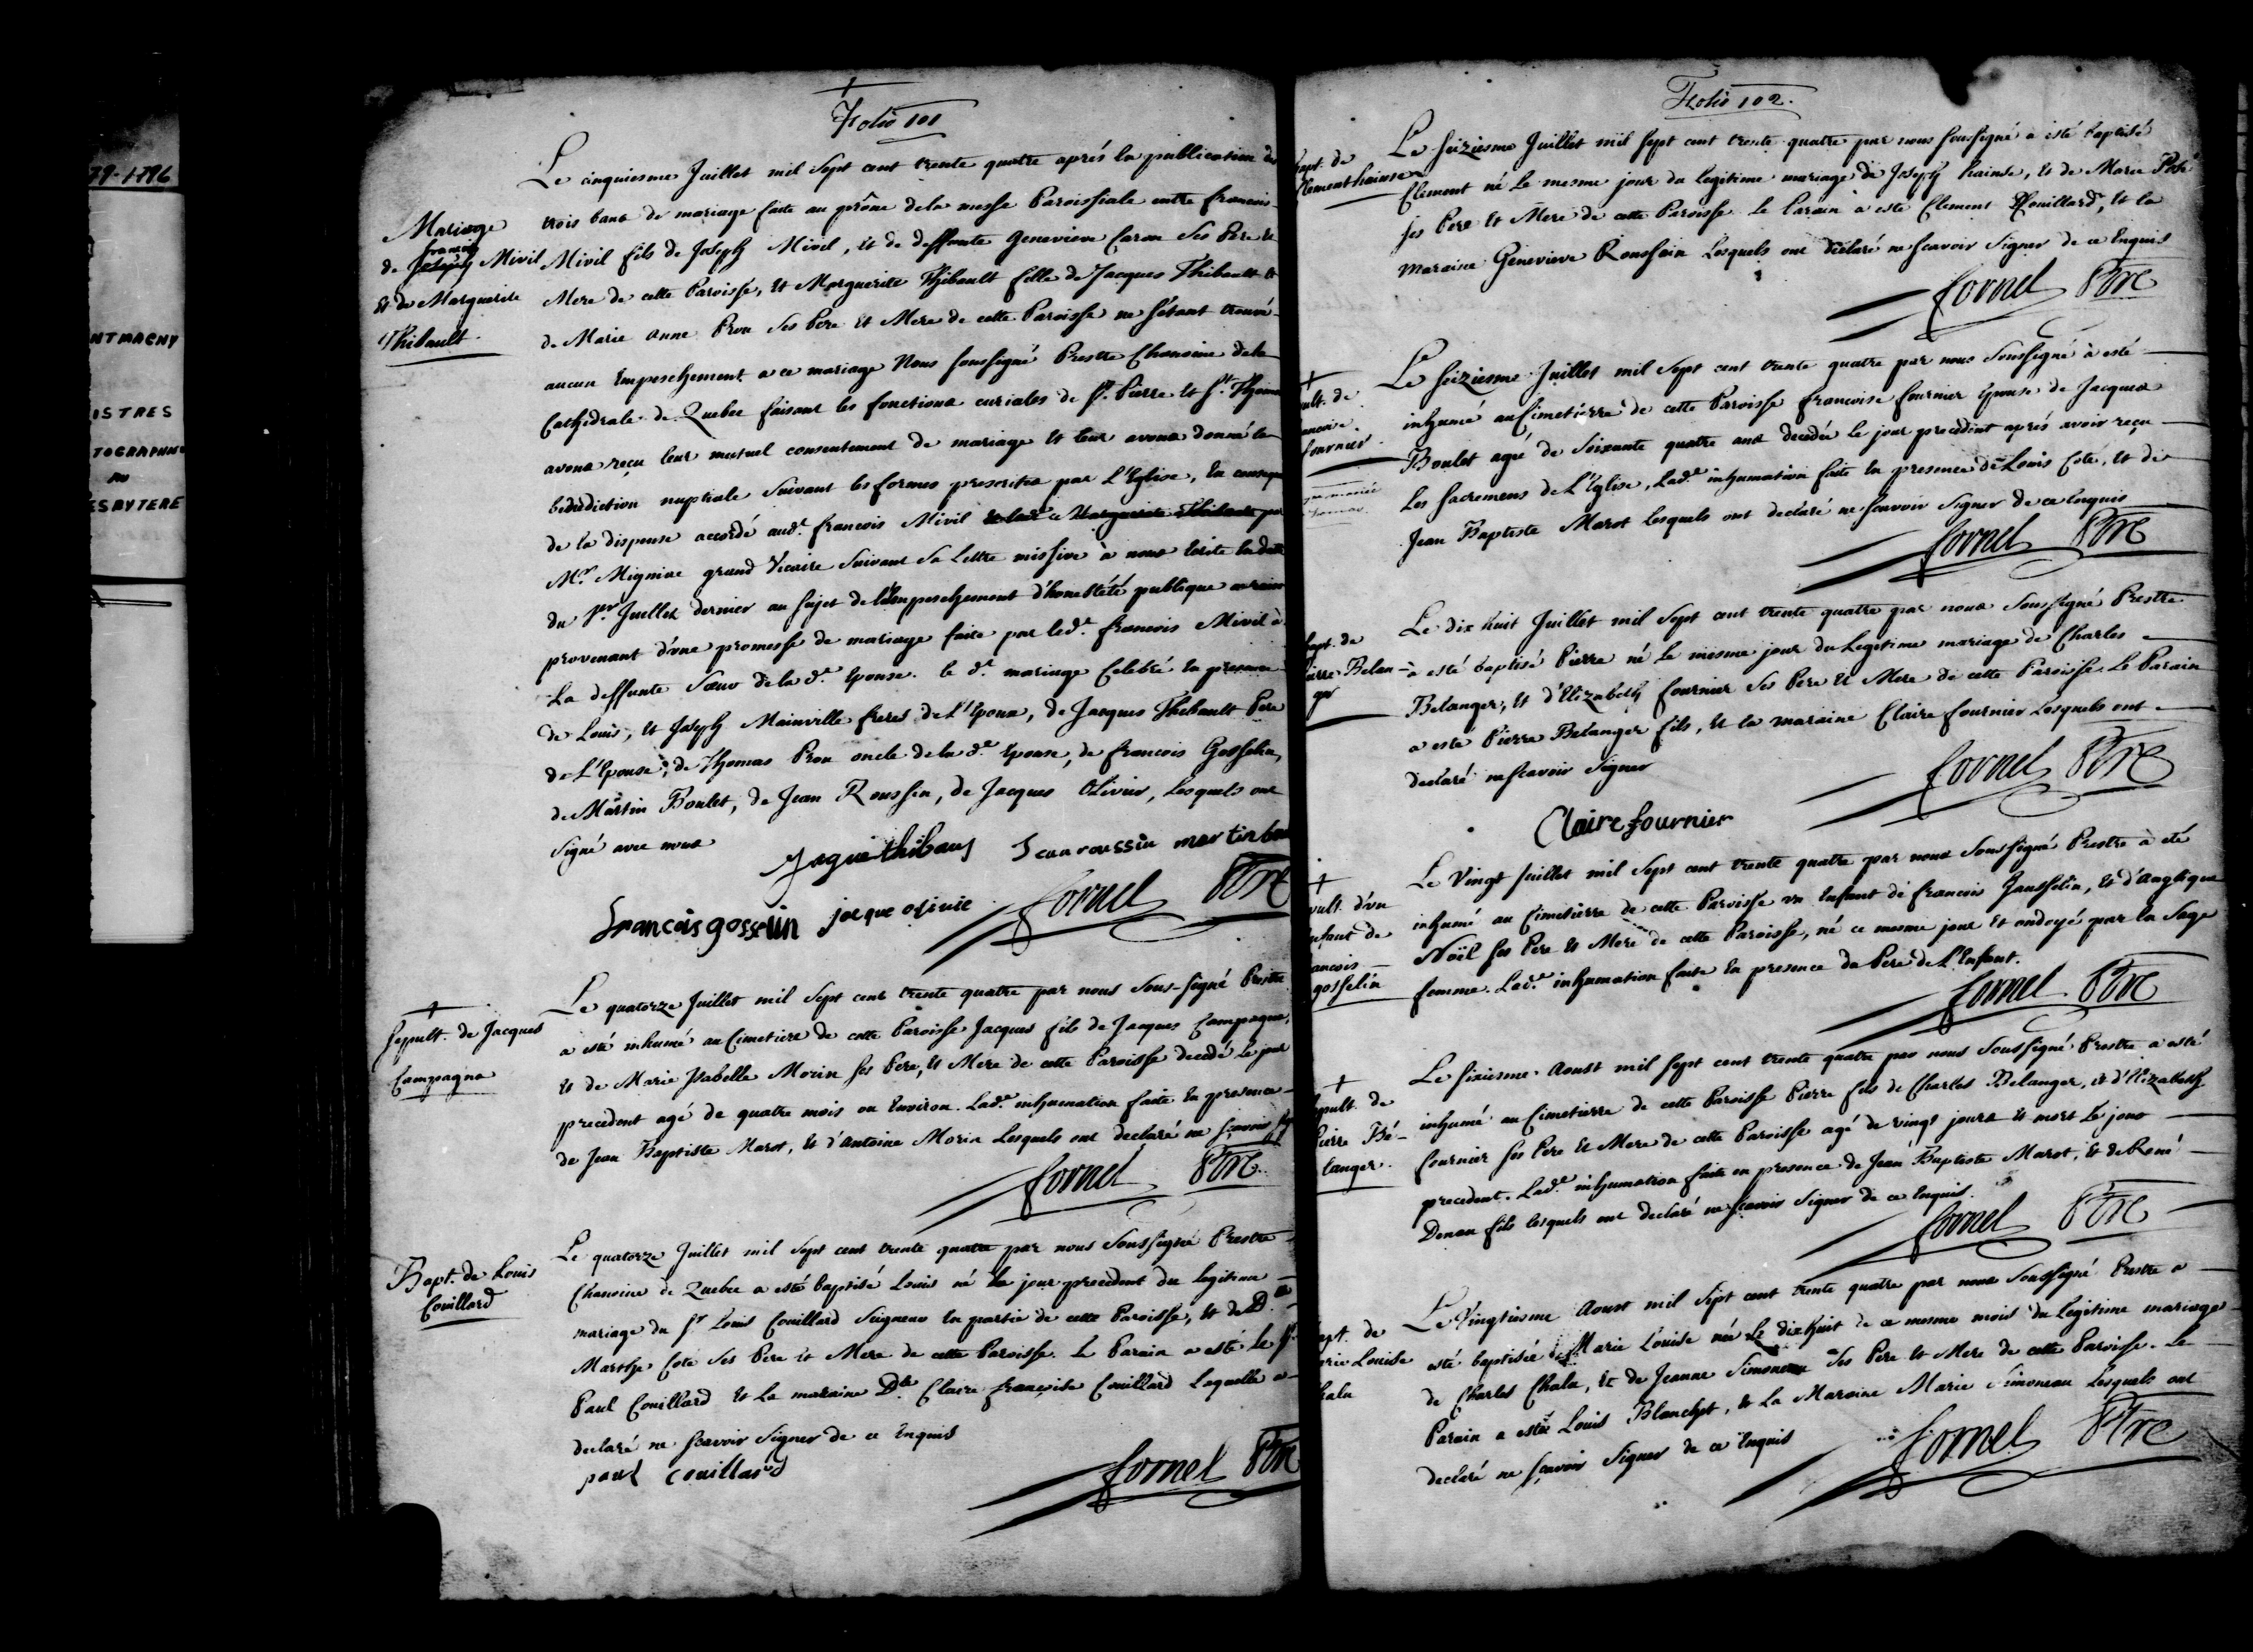 79-1796
NTMAGNY
ISTRES
TOGRAPHI
AU
ESBYTERE
Folio 101
Mariage
de Joseph Mivil
francois
et de Marguerite
Thibault.
Le cinquiesme Juillet mil sept cent trente quatre aprés la publication de
trois bans de mariage faite au prône dela messe Paroissiale entre francois
Mivil fils de Joseph Mivil, et de deffunte Genevieve Caron ses Pere et
Mere de cette Paroisse, et Marguerite Thibault fille de Jacques Thibault et
de Marie anne Prou ses Pere et Mere de cette Paroisse ne s'étant trouvé
aucun Empeschement a ce mariage Nous soussigné Prestre Chanoine dela
Cathedrale de Quebec faisant les fonctions curiales de St. Pierre et St. Thomas
avons reçu leur mutuel consentement de mariage et leur avons donné la
bénédiction nuptiale suivant les formes prescrites par L'Eglise, En conseque
de la dispense accordé aud.t francois Mivil et lad.e Marguerite Thibault par
Mr. Miniac grand Vicaire suivant sa Lettre missive à nous Ecrite En date
du pr. Juillet dernier au sujet de L'Empeschement d'honesteté publique
provenant d'une promesse de mariage faite par led.t francois Mivil à
La deffunte sœur dela d.e Epouse. le d.t mariage Celebré En presence
de Louis, et Joseph Mainville freres de L'Epoux, de Jacques Thibault Pere
de L'Epouse, de Thomas Prou oncle dela d.e Epouse, de francois Gosselin,
de Martin Boulet, de Jean Roussin, de Jacques Olivier, Lesquels ont
signé avec nous
Jaque thibaus Jean roussin martin bou
francois gosselin jacque olivie fornel Ptre
Sepult. de Jacques
Campagna
Le quatorze Juillet mil sept cent trente quatre par nous Sous-signé Prestre
a esté inhumé au Cimetiere de cette Paroisse Jacques fils de Jacques Campagna,
et de Marie Isabelle Morin ses Pere, et Mere de cette Paroisse decedé le jour
precedent agé de quatre mois ou Environ. Lad.e inhumation faite En presence
de Jean Baptiste Marot, et d'Antoine Morin Lesquels ont declaré ne sçavoir
fornel Ptre
Bapt. de Louis
Couillard
Le quatorze Juillet mil sept cent trente quatre par nous Soussigné Prestre
Chanoine de Quebec a esté baptisé Louis né le jour precedent du legitime
mariage du Sr Louis Couillard Seigneur En partie de cette Paroisse, et de D.lle
Marthe Coté ses Pere et Mere de cette Paroisse. Le Parain a esté le Sr
Paul Couillard et La maraine D.lle Claire françoise Couillard Laquelle a
declaré ne sçavoir signer de ce Enquis
paul couillard
fornel Ptre
Folio 102.
apt. de
Clement hainse
Le Seiziesme Juillet mil sept cent trente quatre par nous soussigné à esté baptisé
Clement né le mesme jour du Legitime mariage de Joseph hainse, et de Marie
ses Pere et Mere de cette Paroisse. le Parain à esté Clement Couillard, et la
Maraine Genevieve Roussain Lesquels ont declaré ne sçavoir signer de ce Enquis
fornel Ptre
ult. de
ancoise
fournier
Le Seiziesme Juillet mil sept cent trente quatre par nous Soussigné à esté
inhumé au Cimetierre de cette Paroisse francoise fournier Epouse de Jacques
Boulet agée de Soixante quatre ans decedée le jour precedent aprés avoir reçu
Les Sacremens de L'Eglise, Lad.e inhumation faite En presence de Louis Coté, et de
Jean Baptiste Marot Lesquels ont declaré ne sçavoir signer de ce Enquis
fornel Ptre
apt. de
ierre Belan-
ger
Le dix huit Juillet mil sept cent trente quatre par nous Soussigné Prestre
à esté baptisé Pierre né le mesme jour du Legitime mariage de Charles
Belanger, et d'Elizabeth fournier ses Pere et Mere de cette Paroisse. Le Parain
a esté Pierre Belanger fils, et la maraine Claire fournier Lesquels ont
declaré ne sçavoir signer
fornel Ptre
Claire fournier
pult. d'un
nfant de
ancois
gosselin
Le Vingt Juillet mil sept cent trente quatre par nous Soussigné Prestre à eté
inhumé au Cimetierre de cette Paroisse un Enfant de francois Gausselin, et d'Anglique
Noël ses Pere et Mere de cette Paroisse, né ce mesme jour et ondoyé par la Sage
femme. Lad.e inhumation faite En presence du Pere de L'Enfant.
fornel Ptre
epult. de
Pierre Bé-
langer.
Le sixiesme Aoust mil sept cent trente quatre par nous Soussigné Prestre a esté
inhumé au Cimetierre de cette Paroisse Pierre fils de Charles Belanger, et d'Elizabeth
fournier ses Pere et Mere de cette Paroisse agé de vingt jours et mort le jour
precedent. Lad.e inhumation faite en presence de Jean Baptiste Marot, et de René
Denau fils lesquels ont declaré ne sçavoir signer de ce Enquis.
fornel Ptre
apt. de
arie Louise
halu
Le Vingtiesme Aoust mil sept cent trente quatre par nous Soussigné Prestre a
esté baptisée Marie Louise née Le dixhuit de ce mesme mois du Legitime mariage
de Charles Chalu, et de Jeanne Simoneau ses Pere et Mere de cette Paroisse. Le
Parain a esté Louis Blanchet, et La Maraine Marie Simoneau Lesquels ont
declaré ne sçavoir signer de ce Enquis
fornel Ptre